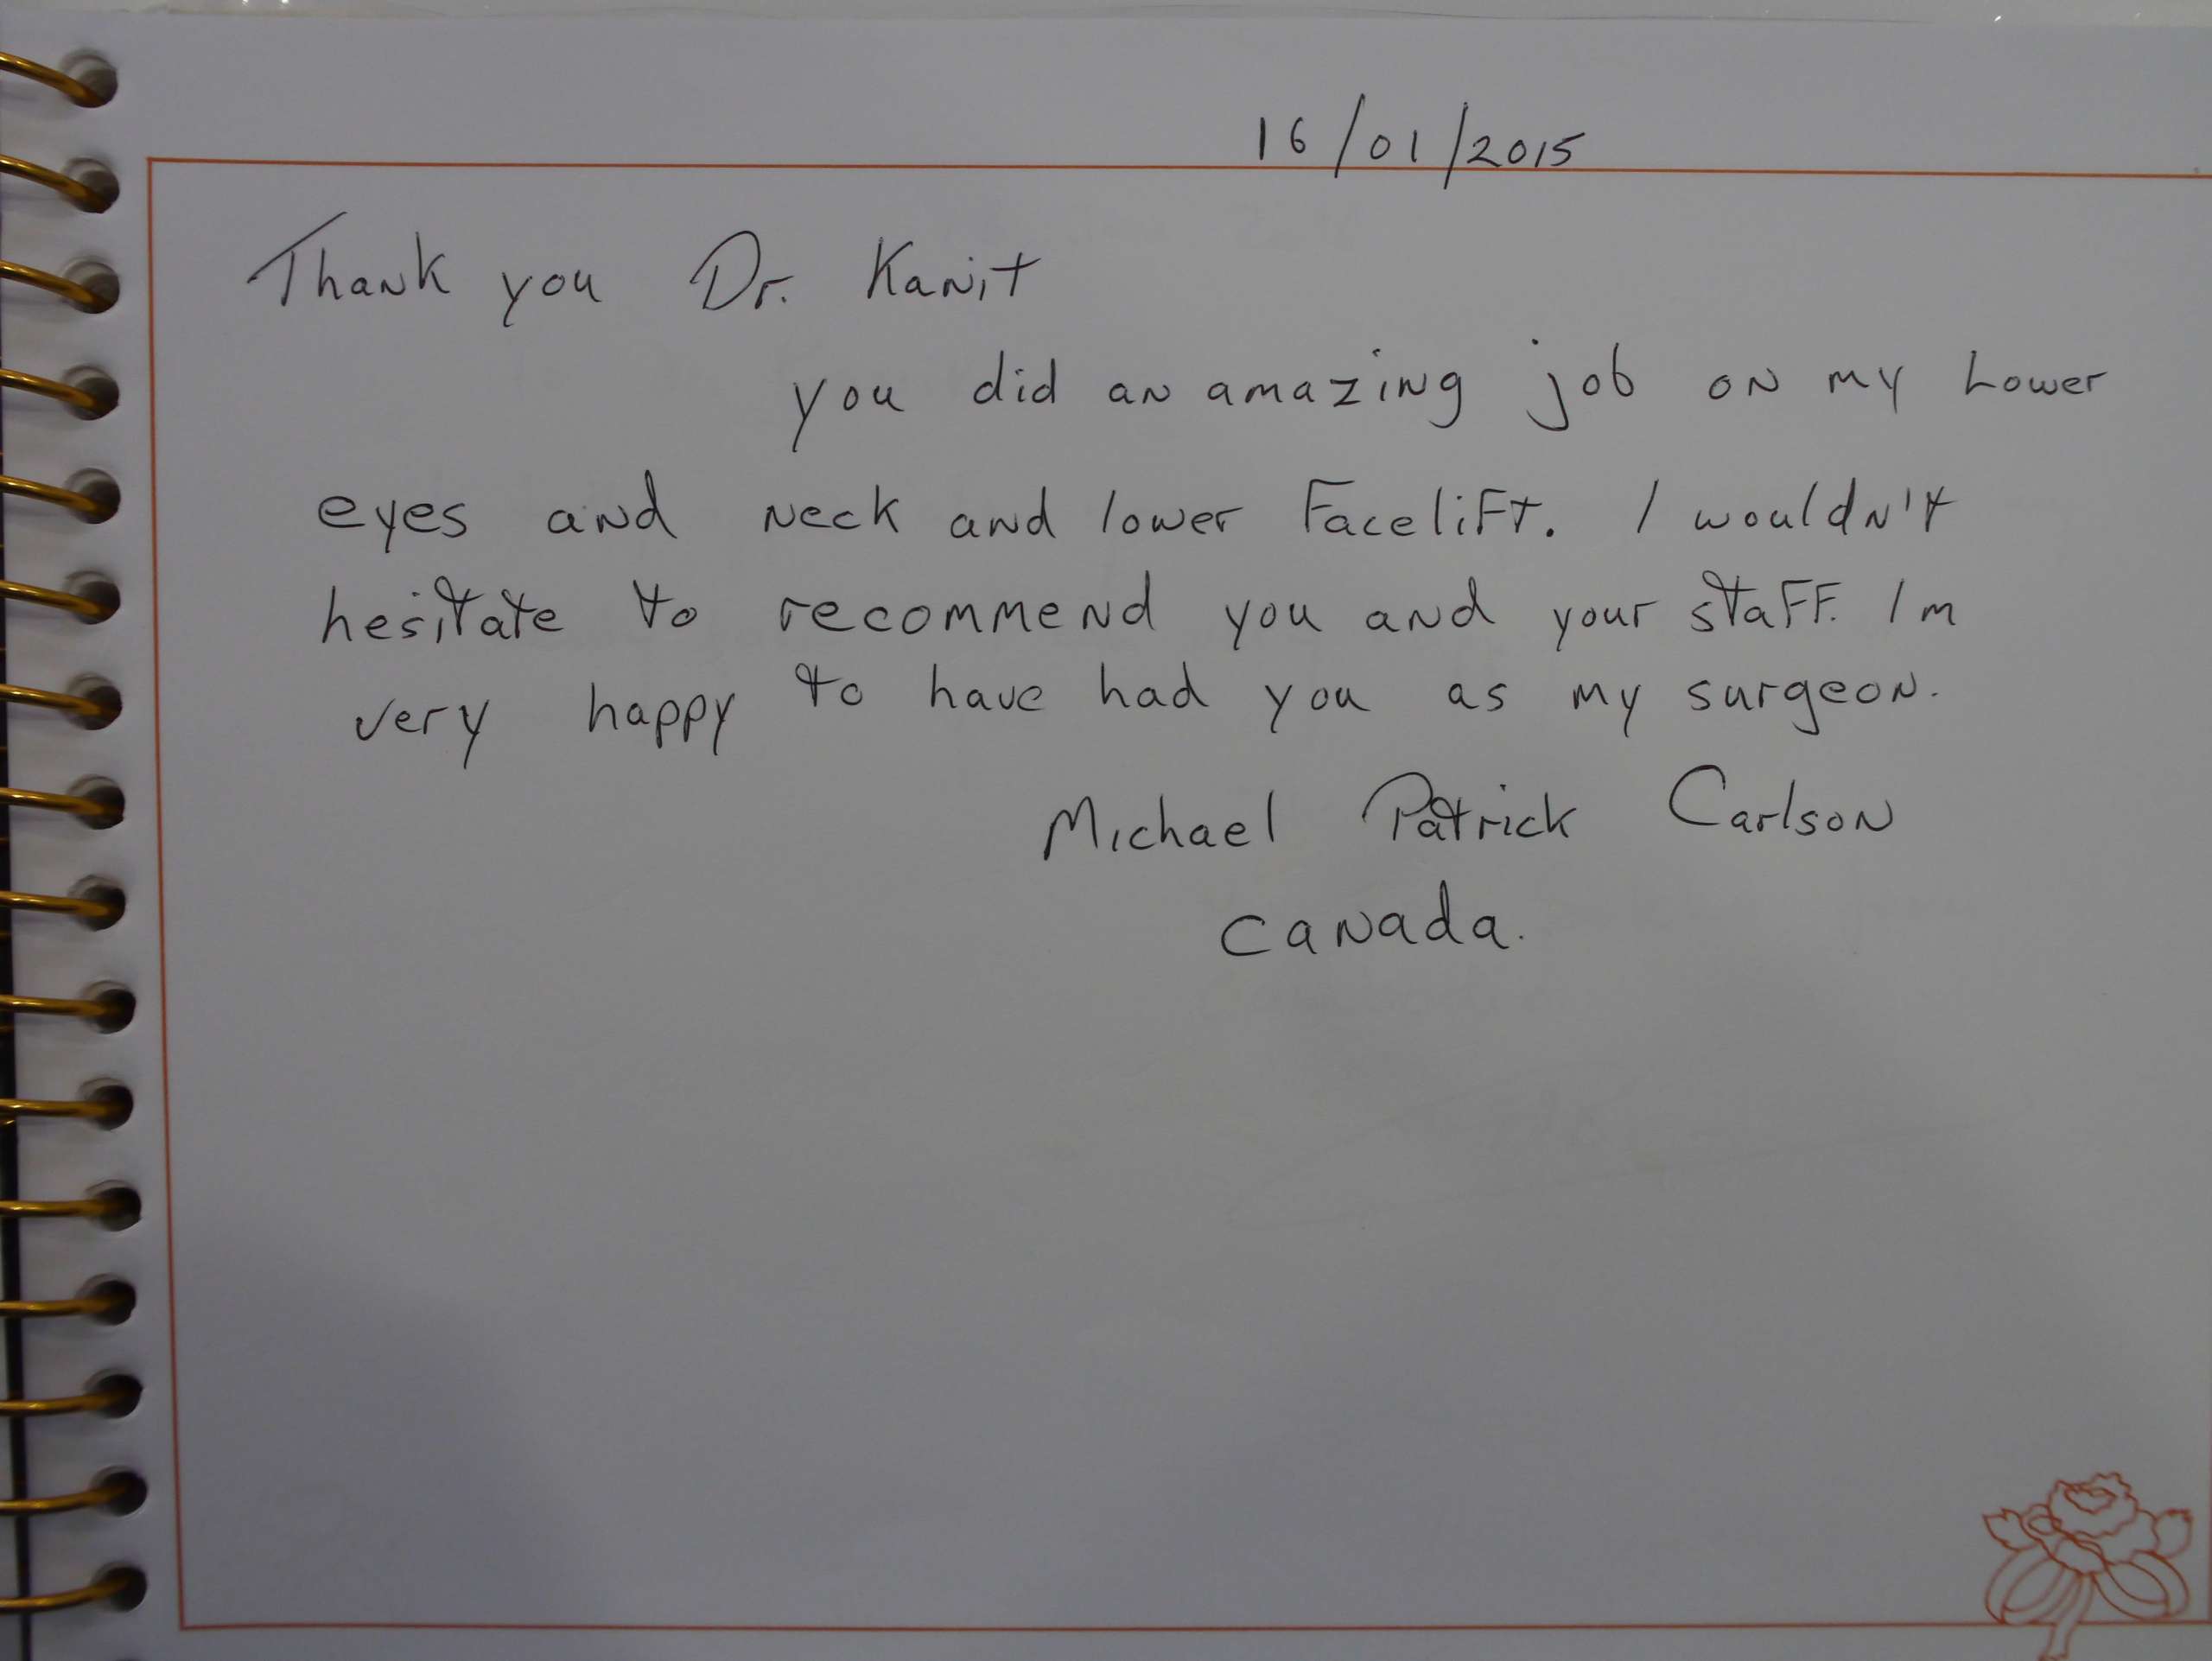 16/01/2015
Thank you Dr. Kanit
you did an amazing job on my Lower
eyes and neck and lower Facelift. I wouldn't
hesitate to recommend you and your staff. Im
very happy to have had you as my surgeon.
Michael Patrick Carlson
Canada.